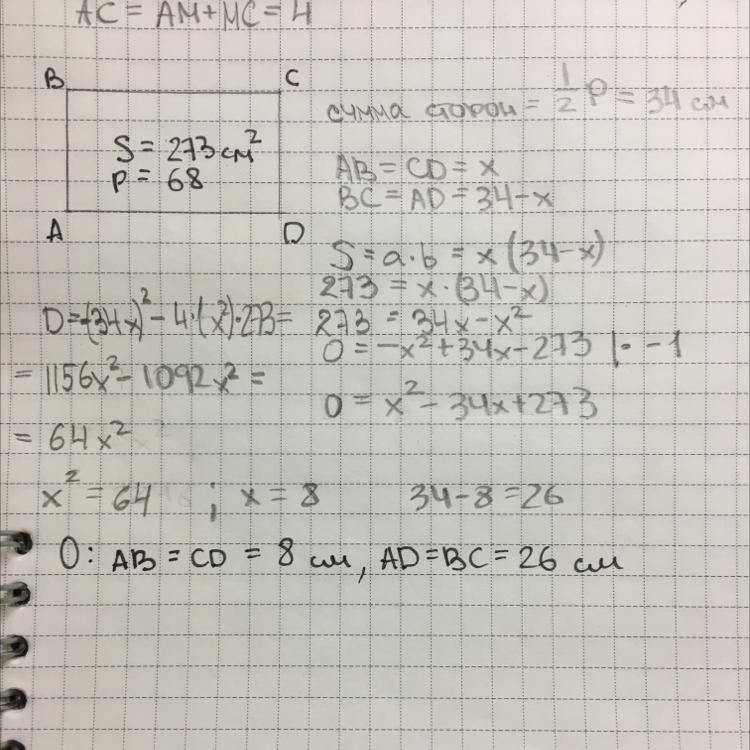 AC = AM+MC = 4
B
C
S = 273 см²
P = 68
A
D
сумма сторон = 1/2 P = 34 см
AB = CD = x
BC = AD = 34-x
S = a·b = x(34-x)
273 = x·(34-x)
273 = 34x-x²
0 = -x²+34x-273 |· -1
0 = x²-34x+273
D=(-34x)²-4·(x²)·273=
= 1156x²-1092x² =
= 64x²
x² = 64 ; x = 8 34-8=26
О: AB = CD = 8 см, AD=BC=26 см